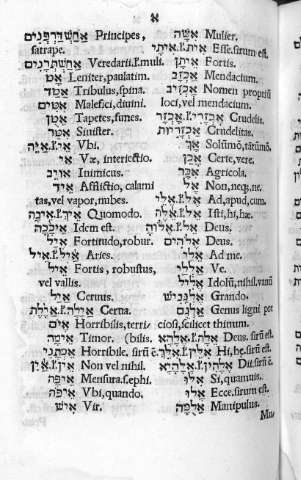 א
אֲחַשְׁדַּרְפְּנִים Principes,
satrapæ.
אֲחַשְׁתְּרָנִים Veredarii. ł. muli.
אַט Leniter, paulatim.
אָטָד Tribulus, spina.
אִטִּים Malefici, divini.
אֵטוּן Tapetes, funes.
אִטֵּר Sinister.
אִי. ł. אַיֵּה Vbi.
אִי Væ, interiectio.
אוֹיֵב Inimicus.
אֵיד Afflictio, calami
tas, vel vapor, nubes.
אֵיךְ. ł. אֵיכָה Quomodo.
אֵיכָכָה Idem est.
אֱיָל Fortitudo, robur.
אַיִל. ł. אֵיל Aries.
אַיִל Fortis, robustus,
vel vallis.
אַיָּל Ceruus.
אַיָּלָה. ł. אַיֶּלֶת Cerua.
אָיֹם Horribilis, terri
אֵימָה Timor. (bilis.
אֵימְתָנִי Horribile. siru est.
אַיִן. ł. אֵין Non vel nihil.
אֵיפָה Mensura. s. ephi.
אֵיפֹה Vbi, quando.
אִישׁ Vir.
אִשָּׁה Mulier.
אִיתַי. ł. אִיתִי Esse. sirum est.
אֵיתָן Fortis.
אַכְזָב Mendacium.
אַכְזִיב Nomen propriū
loci, vel mendacium.
אַכְזָרִי. ł. אַכְזָר Crudelis.
אַכְזְרִיּוּת Crudelitas.
אַךְ Solūmō, tātūmō.
אָכֵן Certe, vere.
אִכָּר Agricola.
אַל Non, neq;, ne.
אֶל. ł. אֱלֵי Ad, apud, cum.
אֵל. ł. אֵלֶּה Isti, hi, hæ.
אֵל. ł. אֱלוֹהַּ Deus.
אֱלֹהִים Deus.
אֵלַי Ad me.
אַלְלַי Væ.
אֱלִיל Idolū, nihil, vanū
אֶלְגָּבִישׁ Grando.
אַלְגּוּמִּים Genus ligni pre
ciosi, scilicet thinum.
אֱלָהּ. ł. אֱלָהָא Deus. sirū est.
אִלֵּין. ł. אִלֵּךְ Hi, hę. sirū est.
אֱלָהִין. ł. אֱלָהַיָּא Dii. sirū ē.
אִלּוּ Si, quamuis.
אֲלוּ Ecce. sirum est.
אֲלֻמָּה Manipulus.